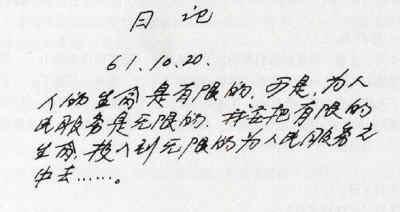 日记
61.10.20.
人的生命是有限的,可是,为人
民服务是无限的,我要把有限的
生命,投入到无限的为人民服务之
中去……。